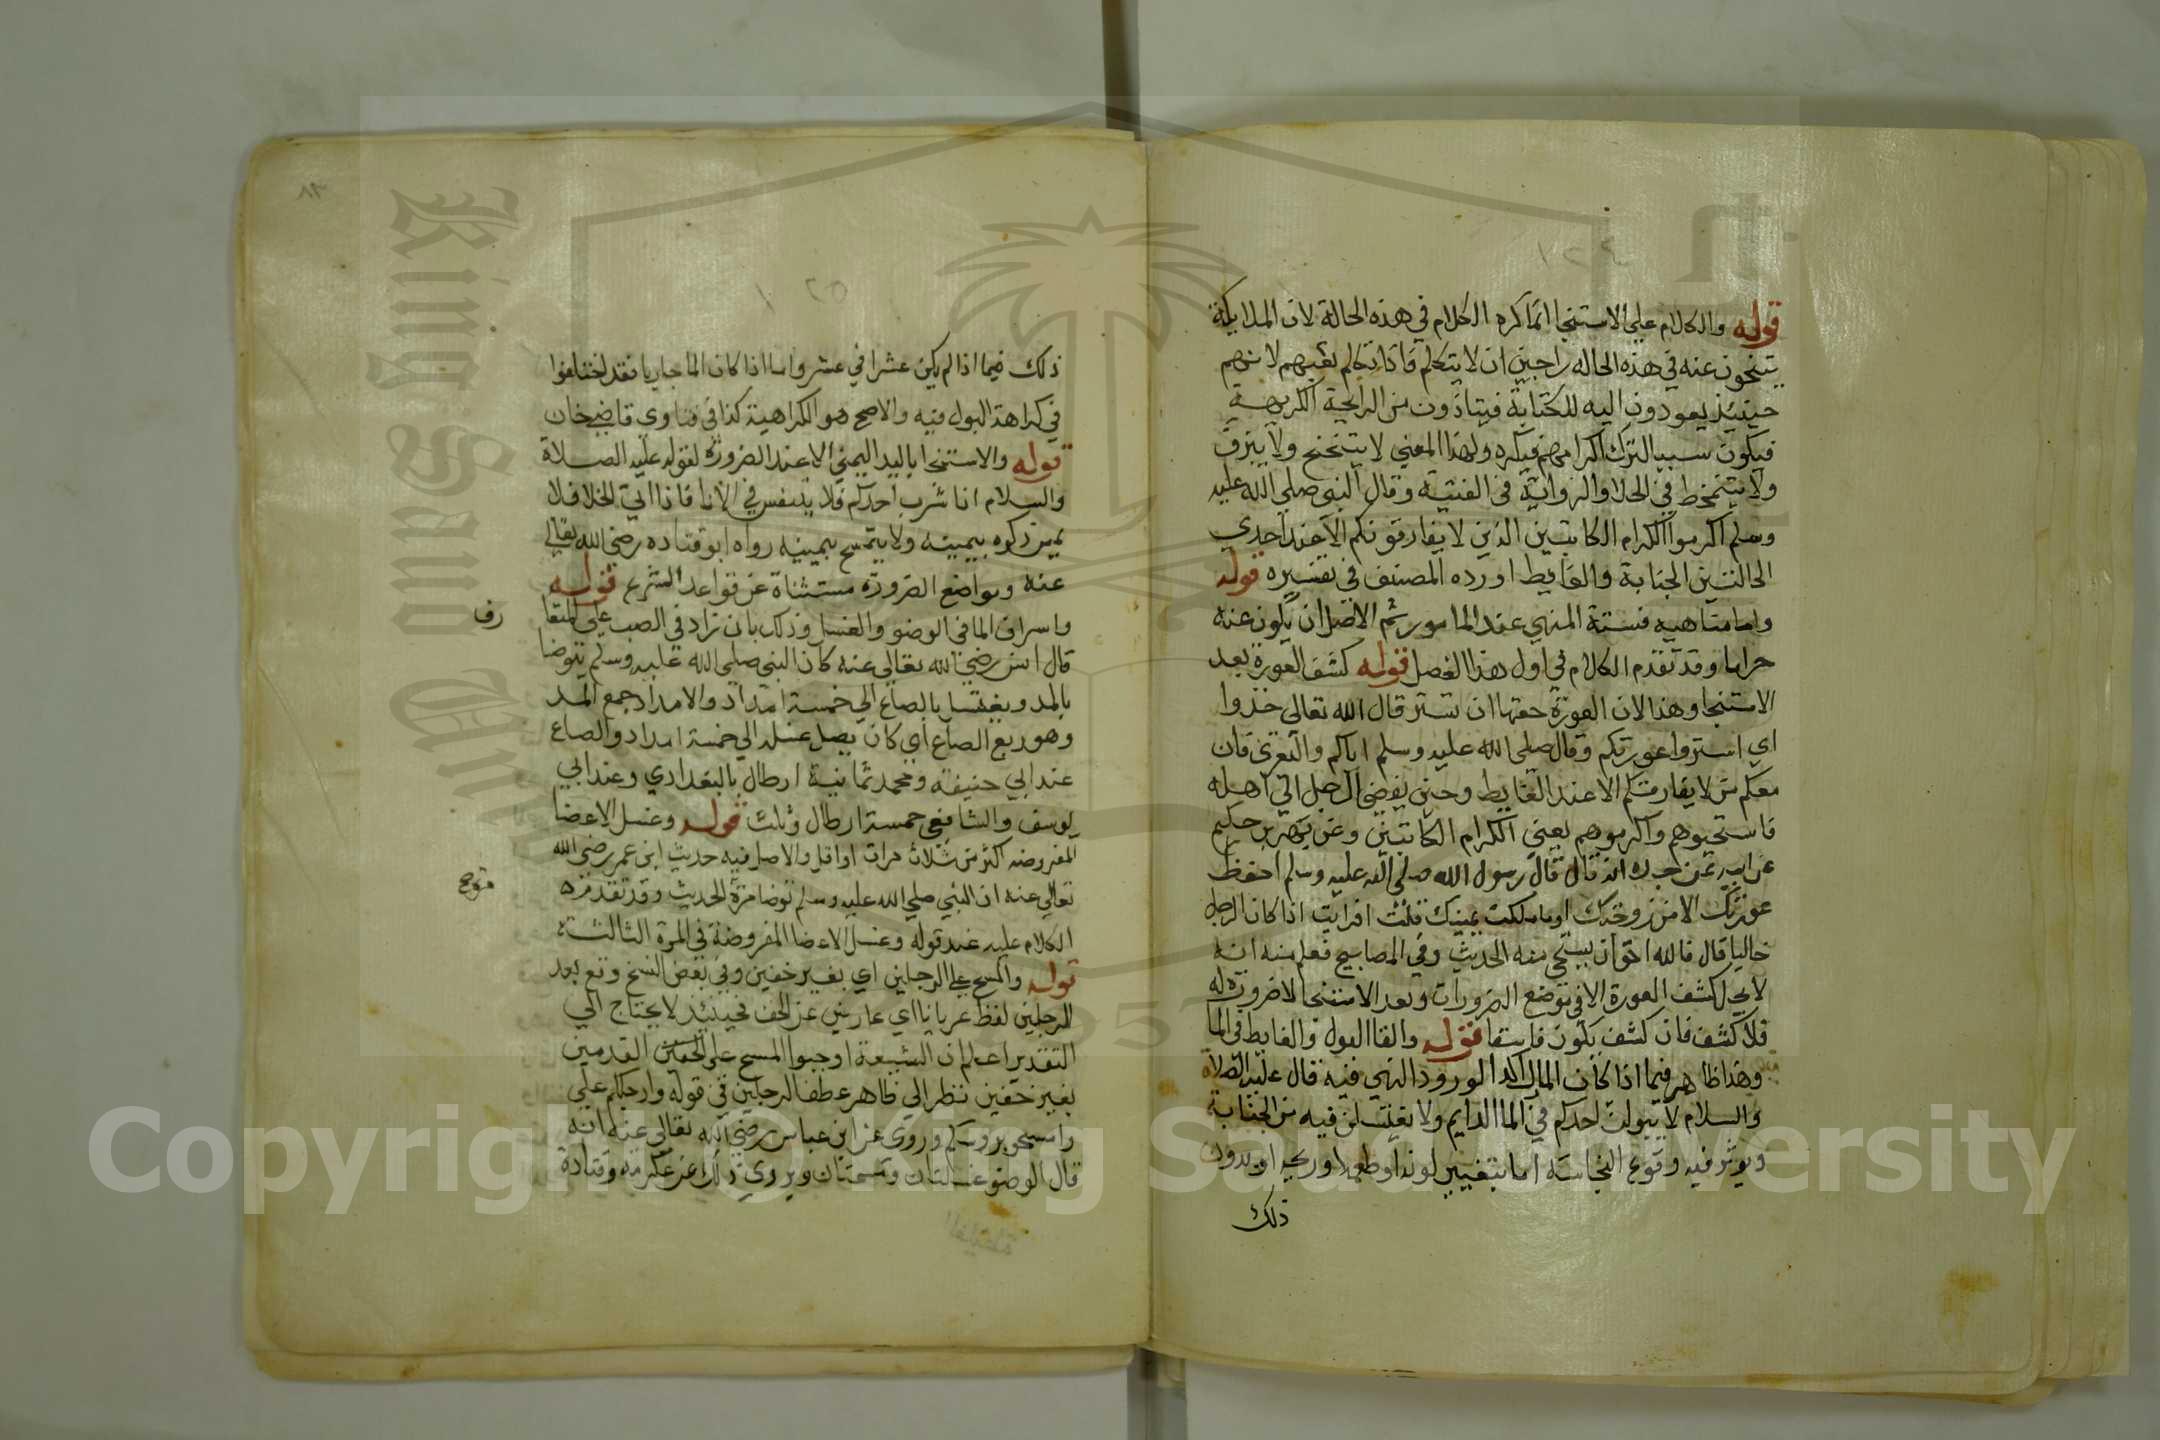 ١٢٤
قوله والكلام علي الاستنجا انما كره الكلام في هذه الحالة لان الملايكة
يتنحون عنه في هذه الحاله راجين ان لا يتكلم فاذا تكلم لانهم
حينيذ يعودون اليه للكتابة فيتاذون من الرايحة الكريهة
فيكون سببا لترك اكرامهم فيكره ولهذا المعني لا يتنحنح ولا يبزق
ولا يتمخط في الخلا والرواية في القنية وقال النبي صلي الله عليه
وسلم اكرموا الكرام الكاتبين الذين لا يفارقونكم الا عند احدي
الحالتين الجنابة والغايط اورده المصنف في تفسيره قوله
واما مناهيه فستة المنهي عند المامور ثم الاصل ان يكون عنه
حراما وقد تقدم الكلام في اول هذا الفصل قوله كشف العورة بعد
الاستنجا وهذا لان العورة حقها ان تستر قال الله تعالي خذوا
اي استروا عورتكم وقال صلي الله عليه وسلم اياكم والتعري فان
معكم من لا يفارقكم الا عند الغايط وحين يفضي الرجل الي اهله
فاستحيوهم واكرموهم يعني الكرام الكاتبين وعن بهز بن حكيم
عن ابيه عن جده انه قال قال رسول الله صلي الله عليه وسلم احفظ
عورتك الا من زوجتك او ما ملكت يمينك قلت افرايت اذا كان الرجل
خاليا قال فالله احق ان يستحي منه الحديث وفي المصابيح فعلم منه انه
لا يحل كشف العورة الا في موضع الضرورات وبعد الاستنجا لا ضرورة له
فلا كشف فان كشف يكون فاسقا قوله والقا البول والغايط في الما
وهذا ظاهر فيما اذا كان الما راكدا لورود النهي فيه قال عليه الصلاة
والسلام لا يبولن احدكم في الما الدايم ولا يغتسلن فيه من الجنابة
ويوثر فيه وقوع النجاسة اما بتغيير لونه او طعمه او ريحه او بدون
ذلك
٨٣
١٢٥
ذلك فيما اذا لم يكن عشرا في عشر واما اذا كان الما جاريا فقد اختلفوا
في كراهة البول فيه والاصح هو الكراهية كذا في فتاوي قاضيخان
قوله والاستنجا باليد اليمني الا عند الضرورة لقوله عليه الصلاة
والسلام اذا شرب احدكم فلا يتنفس في الانا فاذا اتي الخلا فلا
يمس ذكره بيمينه ولا يتمسح بيمينه رواه ابو قتاده رضي الله تعالي
عنه ومواضع الضرورة مستثناة عن قواعد الشرع قوله
واسراف الما في الوضو والغسل وذلك بان تزاد في الصب علي
قال انس رضي الله تعالي عنه كان النبي صلي الله عليه وسلم يتوضا
بالمد ويغتسل بالصاع الي خمسة امداد والامداد جمع المد
وهو ربع الصاع اي كان يصل غسله الي خمسة امداد والصاع
عند ابي حنيفه ومحمد ثمانية ارطال بالبغدادي وعند ابي
يوسف والشافعي خمسة ارطال وثلث قوله وغسل الاعضا
المفروضه اكثر من ثلاث مرات او اقل والاصل فيه حديث ابن عمر رضي الله
تعالي عنه ان النبي صلي الله عليه وسلم توضا مرة الحديث وقد تقدم
الكلام عليه عند قوله وغسل الاعضا المفروضة في المرة الثالثة
قوله والمسح علي الرجلين اي بغير خفين وفي بعض النسخ وقع بعد
الرجلين لفظ عريانا اي عاريتين عن الخف فحينيذ لا يحتاج الي
التقدير اعلم ان الشيعة اوجبوا المسح علي القدمين
بغير خفين نظرا الي ظاهر عطف الرجلين في قوله وارجلكم علي
وامسحوا بروسكم وروي عن ابن عباس رضي الله تعالي عنه انه
قال الوضو غسلتان ومسحتان ويروي ذلك عن عكرمه وقتادة